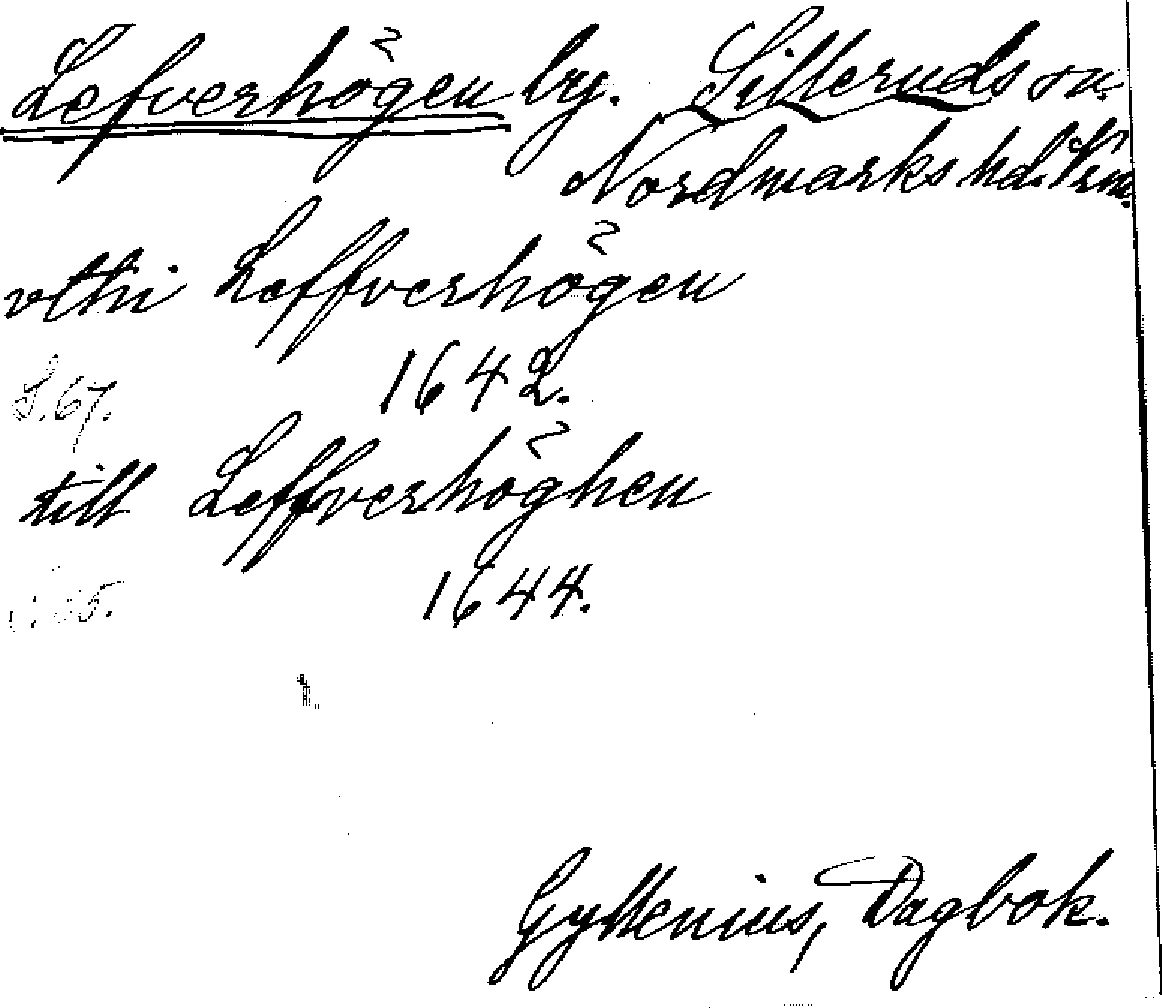 Lefverhögen by. Silleruds sn.
Nordmarks hd. Vrm.
vthi Leffverhögen
S. 67. 1642.
till Leffverhöghen
1644.
Gyllenius, Dagbok.